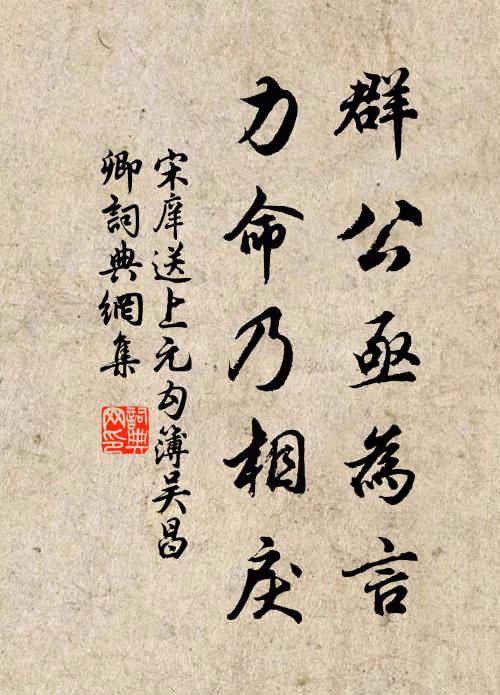 群公亟為言
力命乃相戾
宋庠送上元勾簿吳昌
卿詞典網集
詞典
网印